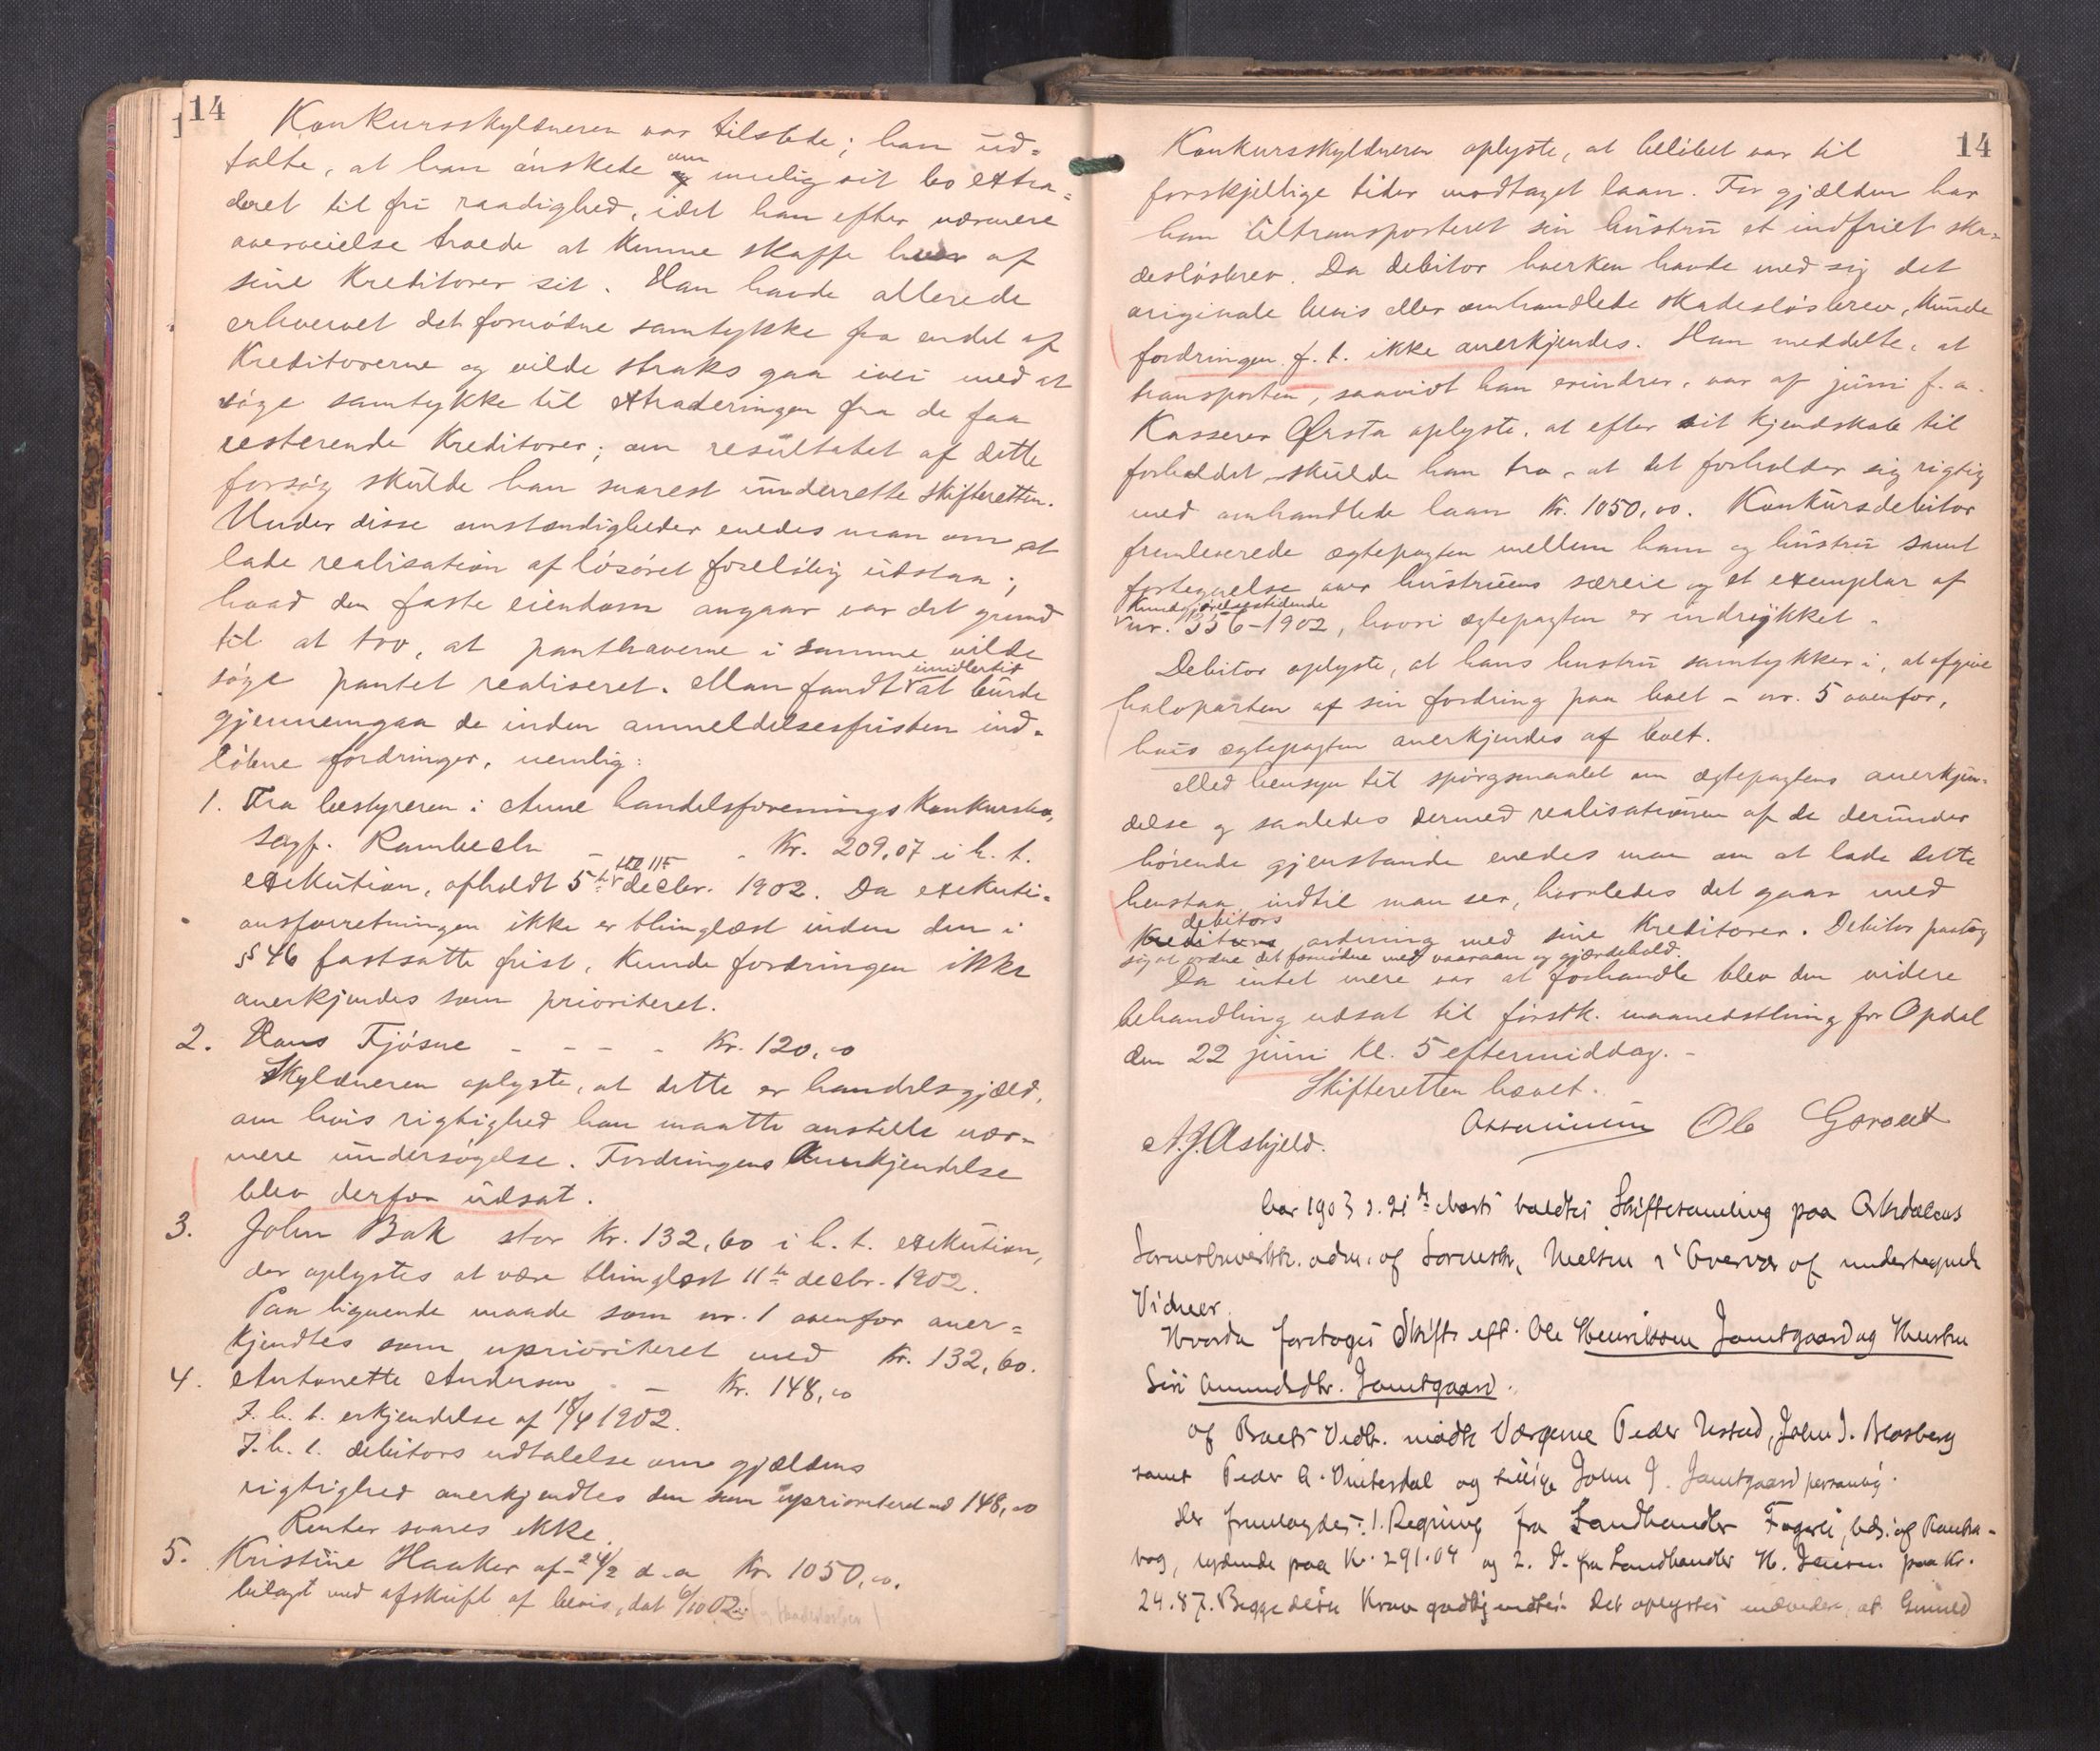 14
Konkursskyldneren var tilstede; han ud=
talte, at han ønskede om mulig sit bo extra=
deret til fri raadighed, idet han efter nærmere
overveielse troede at kunne skaffe hver af
sine kreditorer sit. Han havde allerede
erhvervet det fornødne samtykke fra endel af
kreditorerne og vilde straks gaa ivei med at
søge samtykke til extraderingen fra de faa
resterende kreditorer; om resultatet af dette
forsøg skulde han snarest underrette skifteretten.
Under disse omstændigheder enedes man om at
lade realisation af løsøret foreløbig udstaa;
hvad den faste eiendom angaar var det grund
til at tro, at panthaverne i samme vilde
søge pantet realiseret. Man fandt imidlertid at burde
gjennemgaa de inden anmeldelsesfristen ind-
løbne fordringer, nemlig:
1. Fra bestyreren i Aune handelsforenings konkursbo,
sagf. Rambech - - Kr. 209,07 i h. t.
exekution, afholdt 5te decbr. 1902. Da exekuti-
onsforretningen ikke er thinglæst inden den i
§ 46 fastsatte frist, kunde fordringen ikke
anerkjendes som prioriteret.
2. Hans Fjøsne - - - - Kr. 120,00
Skyldneren oplyste, at dette er handelsgjæld,
om hvis rigtighed han maatte anstille nær-
mere undersøgelse. Fordringens Anerkjendelse
blev derfor udsat.
3. John Bak stor Kr. 132,60 i h. t. exekution,
der oplystes at være thinglæst 11te decbr. 1902.
Paa lignende maade som nr. 1 ovenfor aner=
kjendtes som uprioriteret med Kr. 132,60.
4. Antonette Anderson - - Kr. 148,00
I. h. t. erkjendelse af 18/4 1902.
I. h. t. debitors udtalelse om gjældens
rigtighed anerkjendtes den som uprioriteret med 148,00
Renter svares ikke.
5. Kristine Haaker af 24/2 d. a Kr. 1050,00.
bilagt med afskrift af bevis, dat 6/10 02
14
Konkursskyldneren oplyste, at beløbet var til
forskjellige tider modtaget laan. For gjælden har
han tiltransporteret sin hustru et indfriet ska-
desløsbrev. Da debitor hverken havde med sig det
originale bevis eller omhandlede skadesløsbrev, kunde
fordringen f. t. ikke anerkjendes. Han meddelte, at
transporten, saavidt han erindrer, var af juni f. a.
Kasserer Ørsta oplyste, at efter sit kjendskab til
forholdet skulde han tro, at det forholder sig rigtig
med omhandlede laan Kr. 1050,00. Konkursdebitor
fremleverede ægtepagten mellem ham og hustru samt
fortegnelse over hustruens særeie og et exemplar af
Kundgjørelsestidende
nr. 356-1902, hvori ægtepagten er indrykket.
Debitor oplyste, at hans hustru samtykker i, at afgive
halvparten af sin fordring paa boet - nr. 5 ovenfor,
hvis ægtepagten anerkjendes af boet.
Med hensyn til spørgsmaalet om ægtepagtens anerkjen-
delse og saaledes dermed realisationen af de derunder
hørende gjenstande enedes man om at lade dette
henstaa, indtil man ser, hvorledes det gaar med
debitors
ordning med sine kreditorer. Debitor paatog
sig at ordne det fornødne med vaaraan og gjærdehold.
Da intet mere var at forhandle blev den videre
behandling udsat til førstk. maanedsthing for Opdal
den 22 juni kl. 5 eftermiddag. -
Skifteretten hævet.
Assuminn Ole Gorset
A. J. Asbjeld.
Aar 1903 d. 21de Marts holdtes Skiftesamling paa
af Nielsen i Overvær af undertegnede
Vidner.
Hvorda foretoges Skifte eft. Ole Henriksen Jamtgaard og Hustru
Siri Amundsdtr. Jamtgaard.
af Boets Vedk. mødte Værgerne Peder Ustad, John J.
samt Peder A. Vinterdal og tillige John J. Jamtgaard personlig.
Der fremlagdes: 1. Regning fra Landhandler Fagerli,
lydende paa Kr. 291.04 og 2. D. fra Landhandler H. Jensen paa Kr.
24.87. Begge disse Krav godkjendtes. Det oplystes endvidere, at Gunild